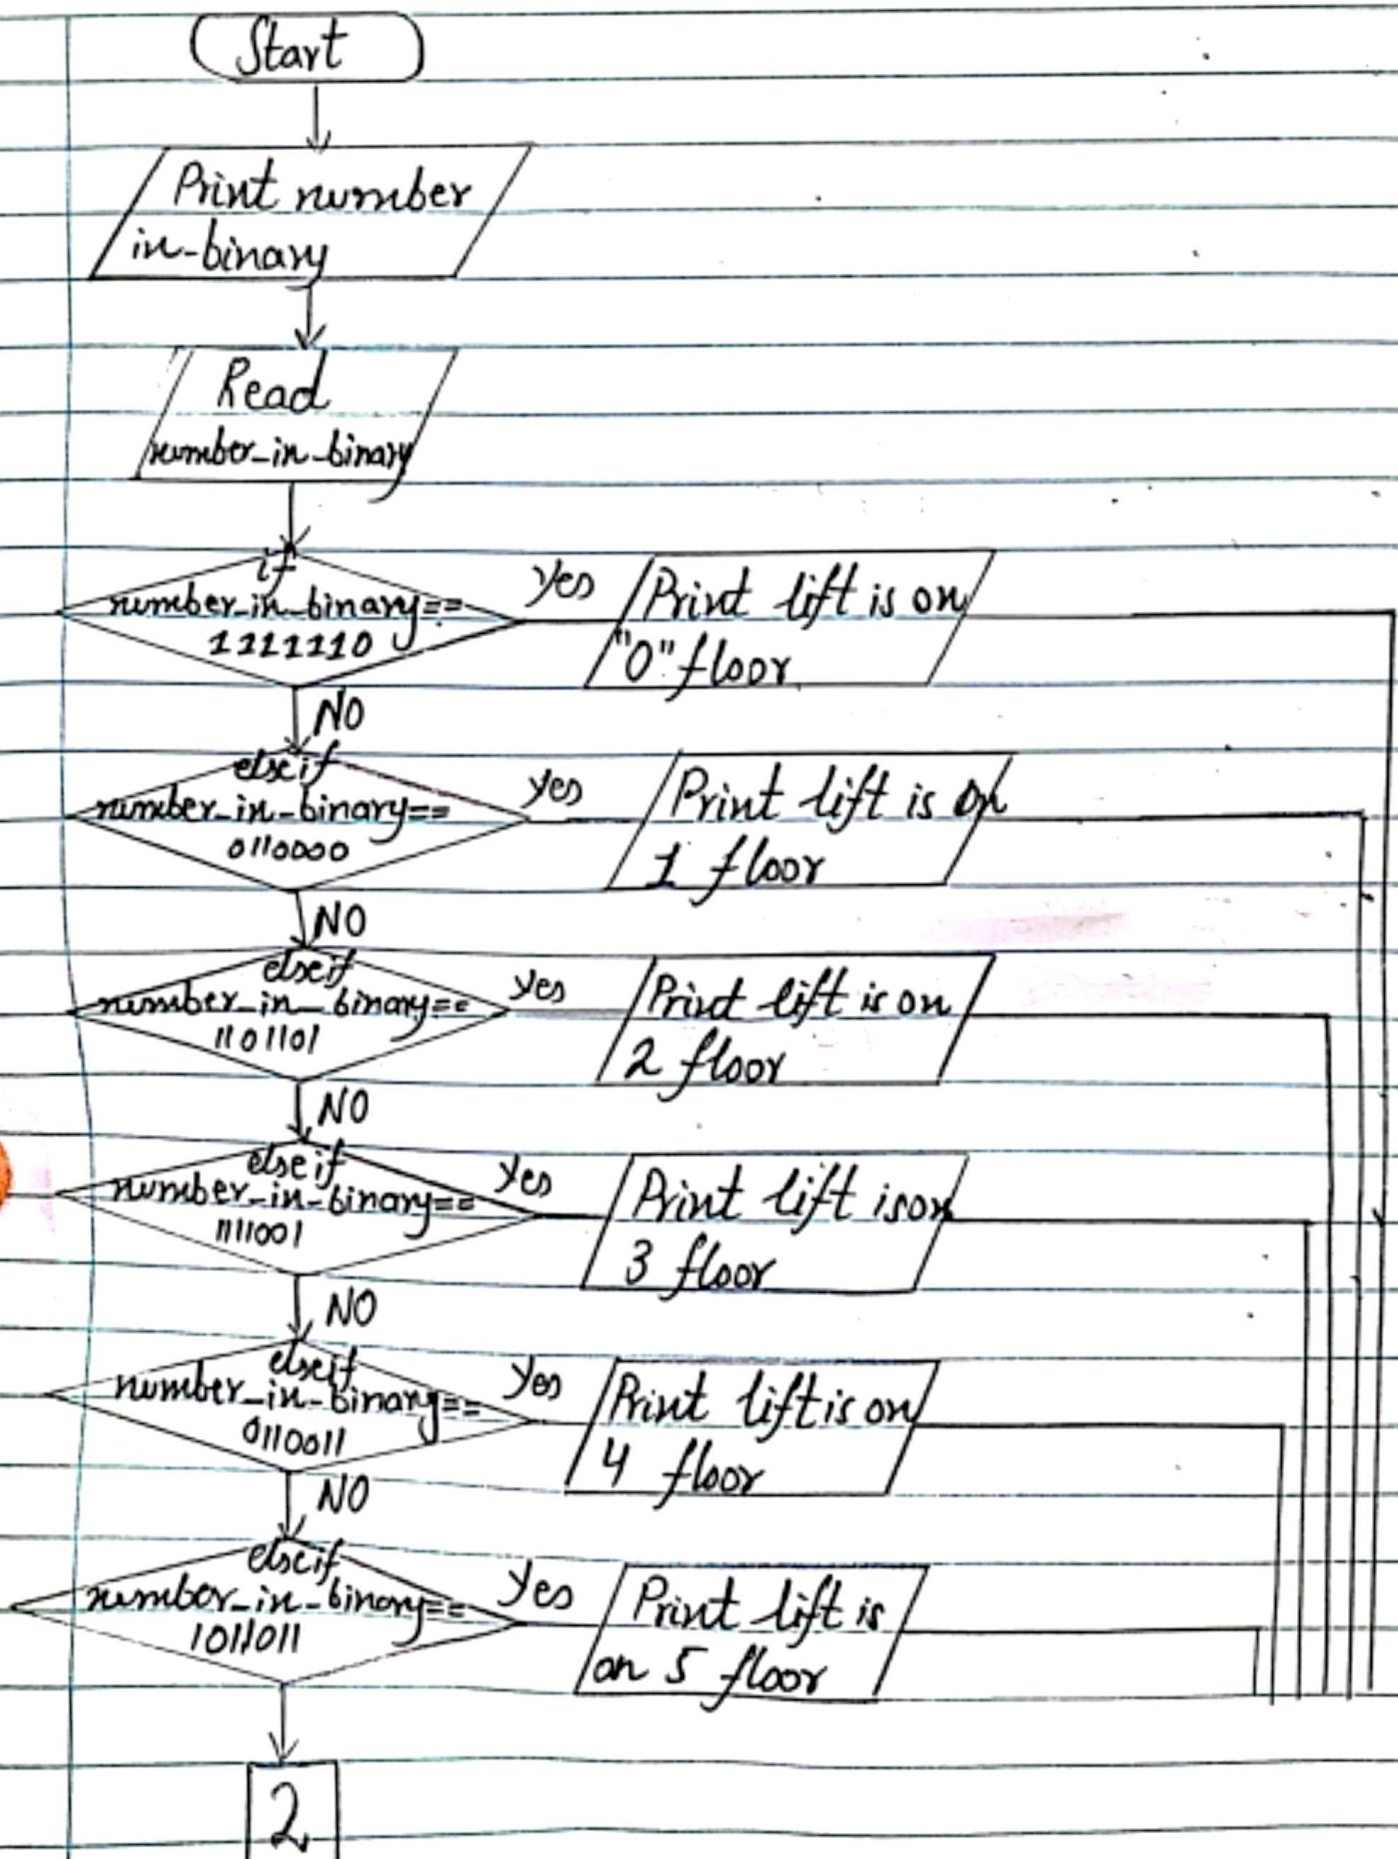 Start
Print number
in-binary
Read
number_in_binary
if
number_in_binary==
1111110
Yes
Print lift is on
"0" floor
NO
elseif
number_in-binary==
0110000
Yes
Print lift is on
1 floor
NO
elseif
number_in_binary==
1101101
Yes
Print lift is on
2 floor
NO
elseif
number_in-binary==
1111001
Yes
Print lift is on
3 floor
NO
elseif
number_in-binary==
0110011
Yes
Print lift is on
4 floor
NO
elseif
number_in-binary==
1011011
Yes
Print lift is
on 5 floor
2